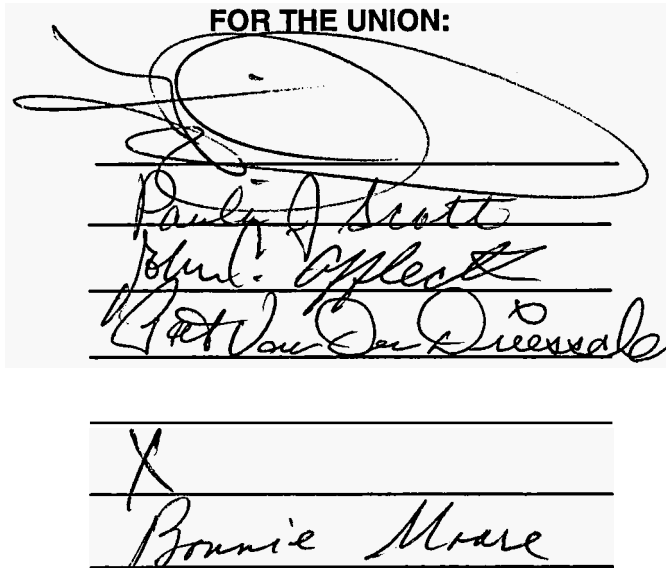 FOR THE UNION:
Paulin J Scott
John C. Affleck
Pat Van Den Driessche
X
Bonnie Moore